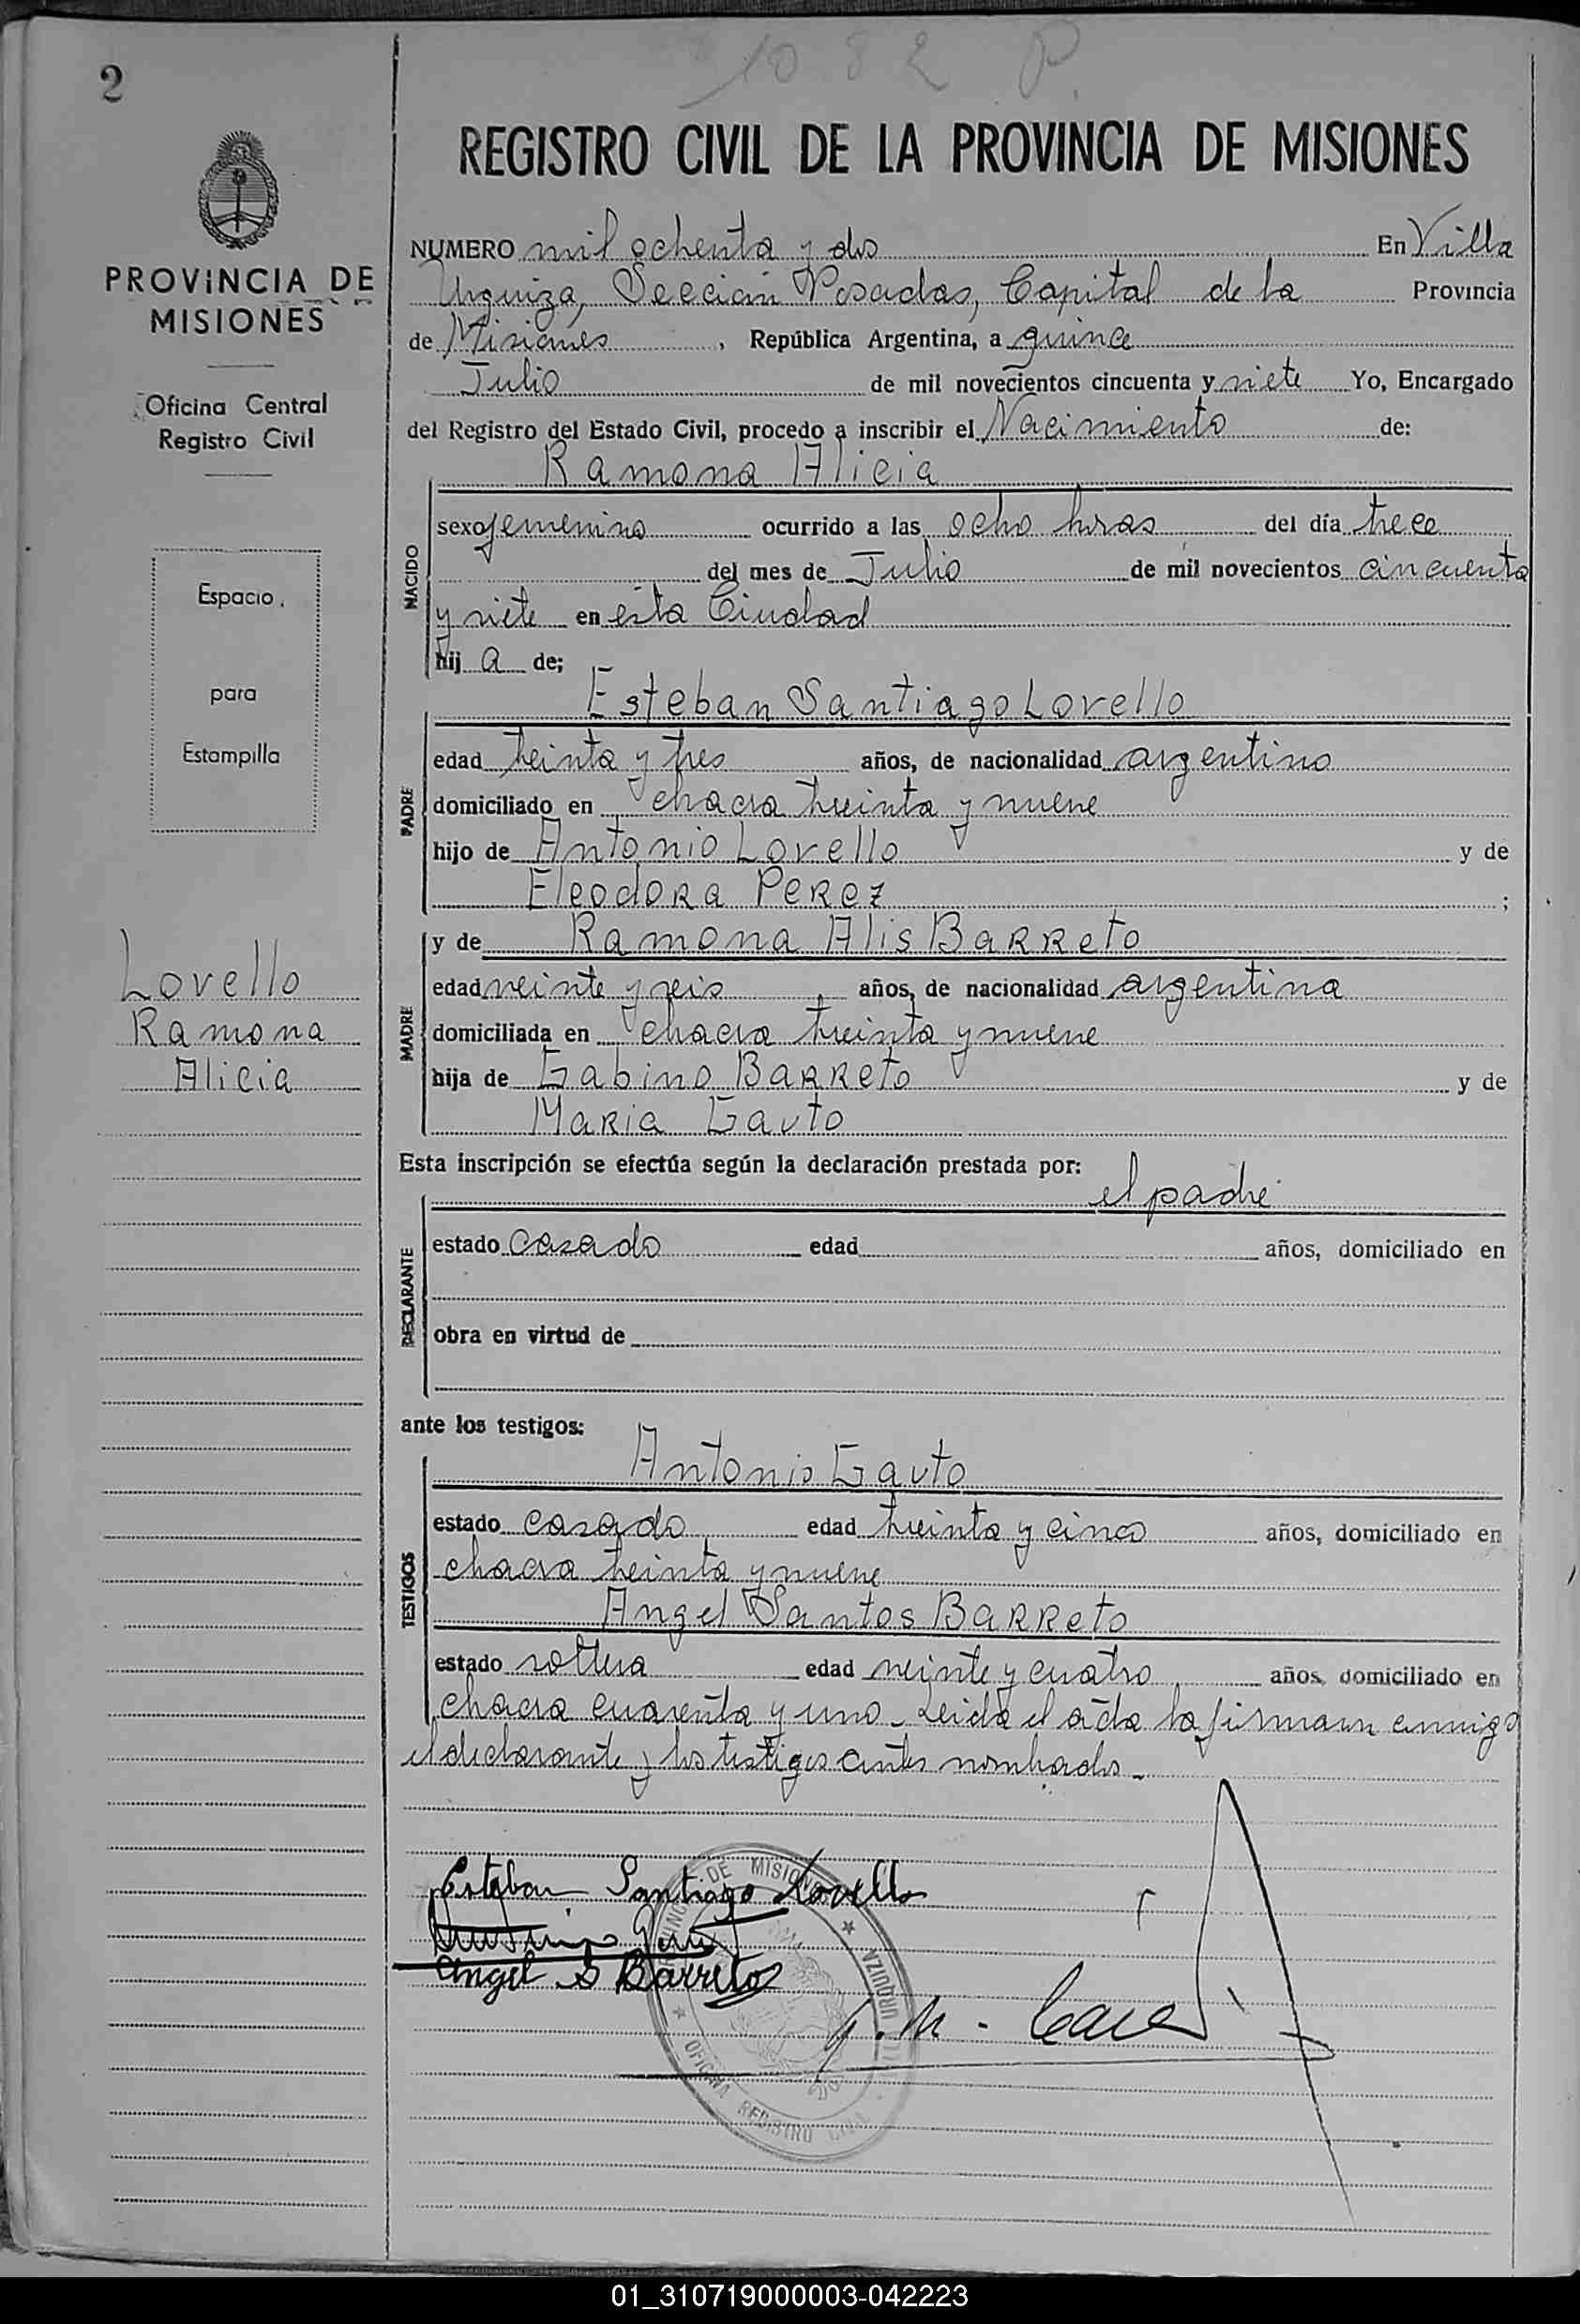 1082 P.
2
REGISTRO CIVIL DE LA PROVINCIA DE MISIONES
PROVINCIA DE
MISIONES
Oficina Central
Registro Civil
Espacio
para
Estampilla
Lovello
Ramona
Alicia
NUMERO mil ochenta y dos En Villa
Urquiza, Sección Posadas, Capital de la Provincia
de Misiones, República Argentina, a quince
Julio de mil novecientos cincuenta y siete Yo, Encargado
del Registro del Estado Civil, procedo a inscribir el Nacimiento de:
Ramona Alicia
NACIDO
sexo femenino ocurrido a las ocho horas del día trece
del mes de Julio de mil novecientos cincuenta
y siete en esta Ciudad
hij a de;
Esteban Santiago Lovello
PADRE
edad treinta y tres años, de nacionalidad argentino
domiciliado en chacra treinta y nueve
hijo de Antonio Lovello y de
Eleodora Perez ;
y de Ramona Alis Barreto
MADRE
edad veinte y seis años, de nacionalidad argentina
domiciliada en chacra treinta y nueve
hija de Gabino Barreto y de
Maria Gauto
Esta inscripción se efectúa según la declaración prestada por:
el padre
DECLARANTE
estado casado edad años, domiciliado en
obra en virtud de
ante los testigos:
Antonio Gauto
TESTIGOS
estado casado edad treinta y cinco años, domiciliado en
chacra treinta y nueve
Angel Santos Barreto
estado soltero edad veinte y cuatro años, domiciliado en
chacra cuarenta y uno_ Leida el acta la firman conmigo
el declarante y los testigos antes nombrados_
Esteban Santiago Lovello
Angel S Barreto
DE MISIONES
URQUIZA
OFICINA REGISTRO CIVIL
01_310719000003-042223